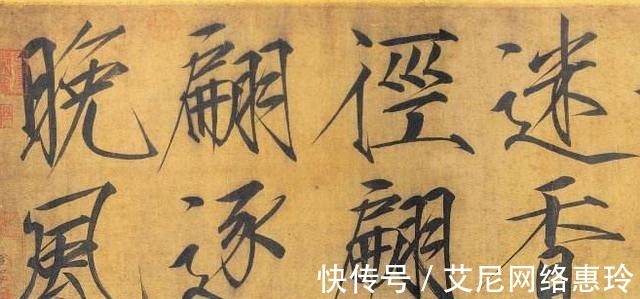 迷香
徑翩
翩逐
晚風
快传号 / 艾尼网络惠玲